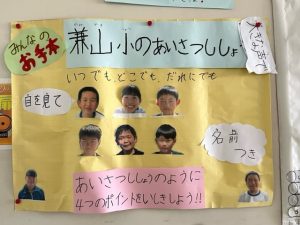 みんなの
お手本
兼山小のあいさつししょう
大きな声で
いつでも、どこでも、だれにでも
目を見て
名前
つき
あいさつししょうのように
4つのポイントをいしきしよう!!